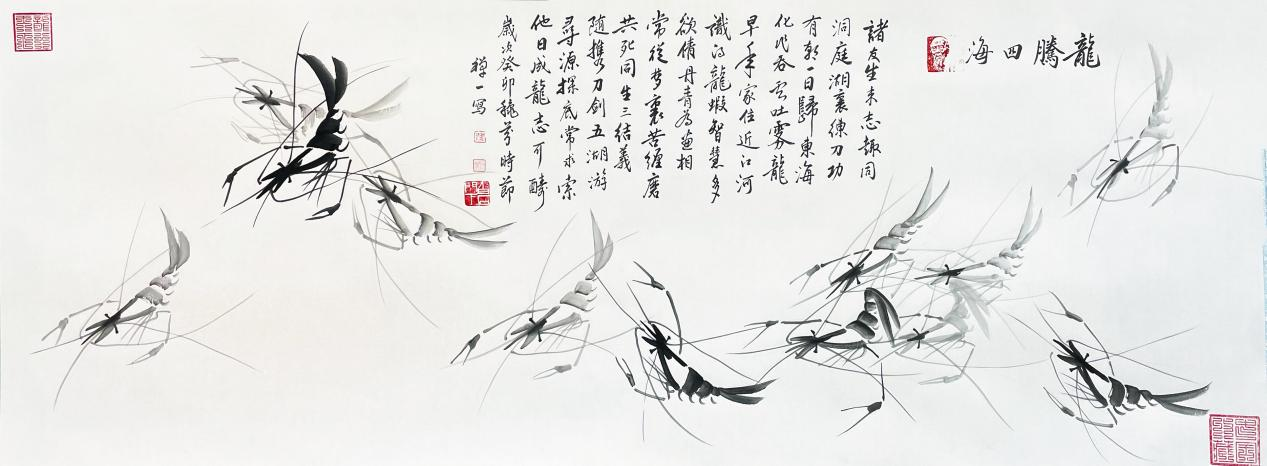 龍騰四海
諸友生來志趣同
洞庭湖裏練刀功
有朝一日歸東海
化作吞雲吐霧龍
早年家住近江河
識得龍蝦智慧多
欲倩丹青為畫相
常從夢裏苦纏磨
共死同生三結義
隨攜刀劍五湖游
尋源探底常求索
他日成龍志可酬
歲次癸卯穐兮時節
禪一寫